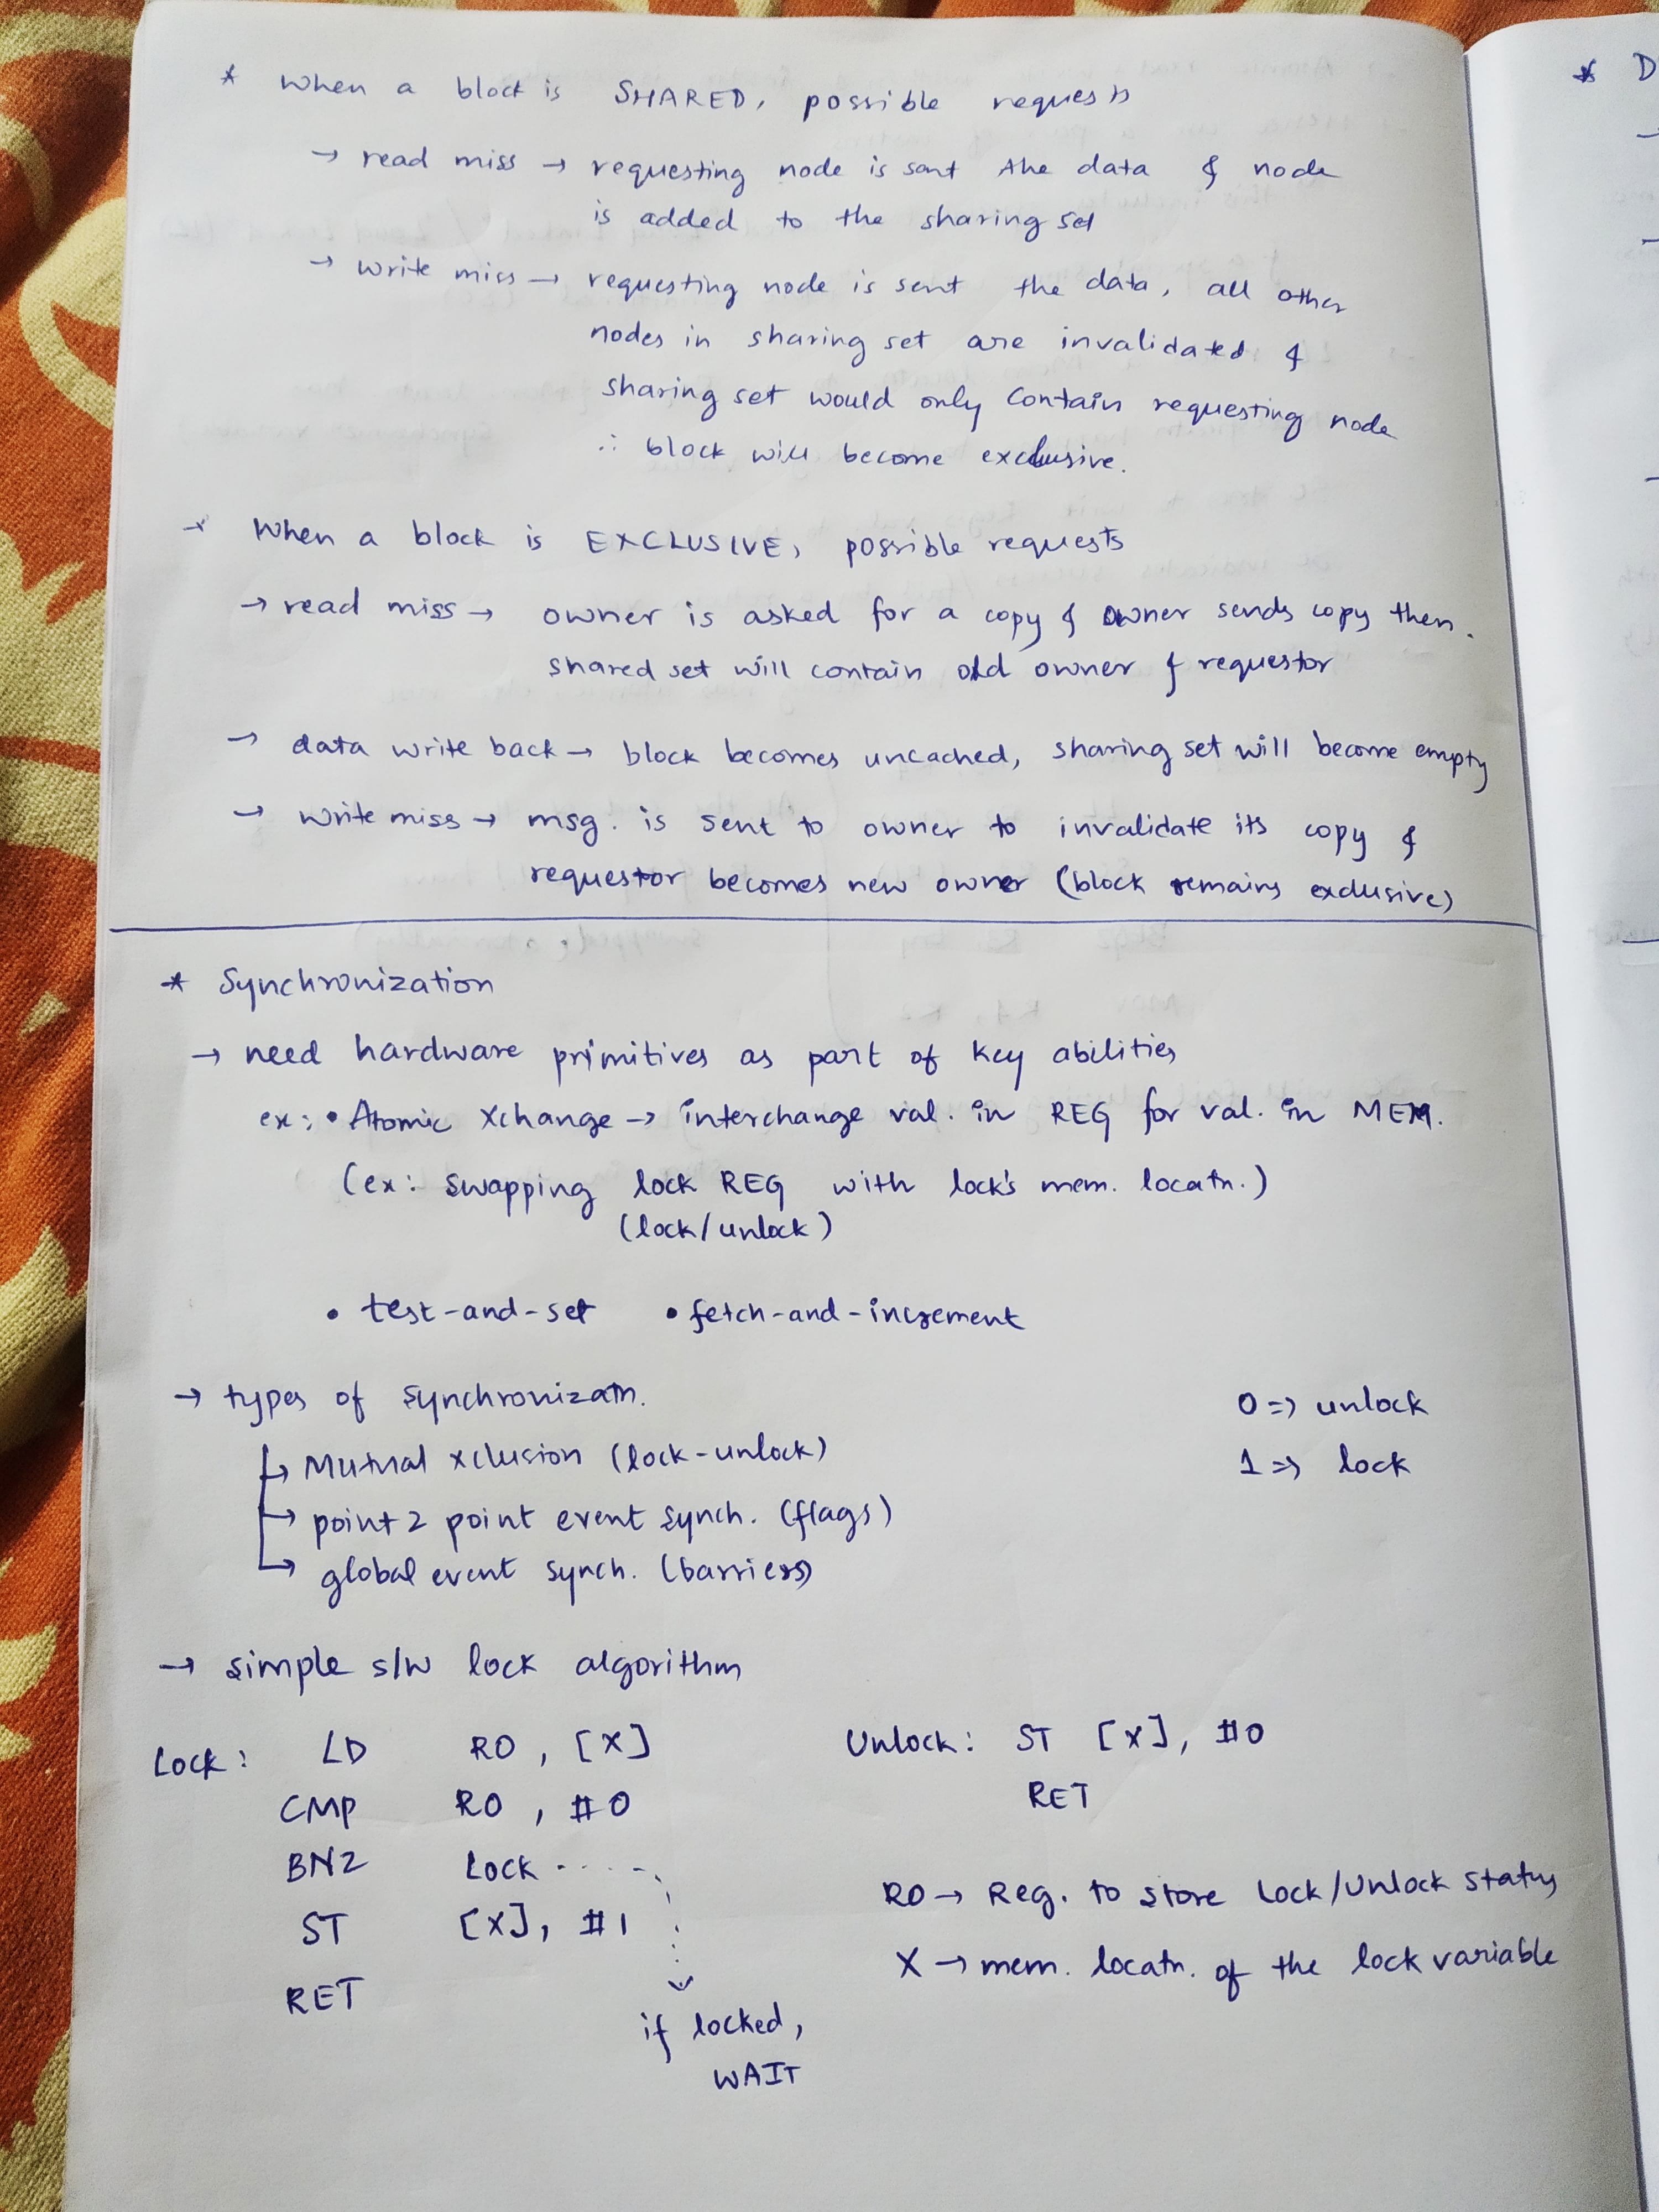 * When a block is SHARED, possible requests
→ read miss → requesting node is sent the data & node
is added to the sharing set
→ write miss → requesting node is sent the data, all other
nodes in sharing set are invalidated &
sharing set would only contain requesting node
∴ block will become exclusive.
* When a block is EXCLUSIVE, possible requests
→ read miss → owner is asked for a copy & owner sends copy then.
shared set will contain old owner & requestor
→ data write back → block becomes uncached, sharing set will become empty
→ write miss → msg. is sent to owner to invalidate its copy &
requestor becomes new owner (block remains exclusive)
* Synchronization
→ need hardware primitives as part of key abilities
ex: • Atomic Xchange → interchange val. in REG for val. in MEM.
(ex: swapping lock REG with lock's mem. locatn.)
(lock/unlock)
• test-and-set • fetch-and-increment
→ types of synchronizatn.
↳ Mutual xclusion (lock-unlock)
→ point 2 point event synch. (flags)
→ global event synch. (barriers)
0 => unlock
1 => lock
→ simple s/w lock algorithm
Lock: LD R0, [X]
CMP R0, #0
BNZ Lock
ST [X], #1
RET
if locked,
WAIT
Unlock: ST [X], #0
RET
R0 → Reg. to store Lock/Unlock status
X → mem. locatn. of the lock variable
* D